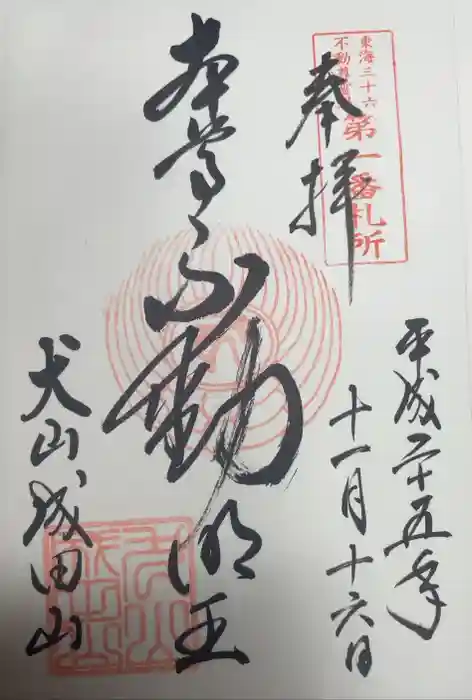 東海三十六
不動尊霊場
第一番札所
奉拝
平成二十五年
十一月十六日
本尊
不動明王
犬山成田山